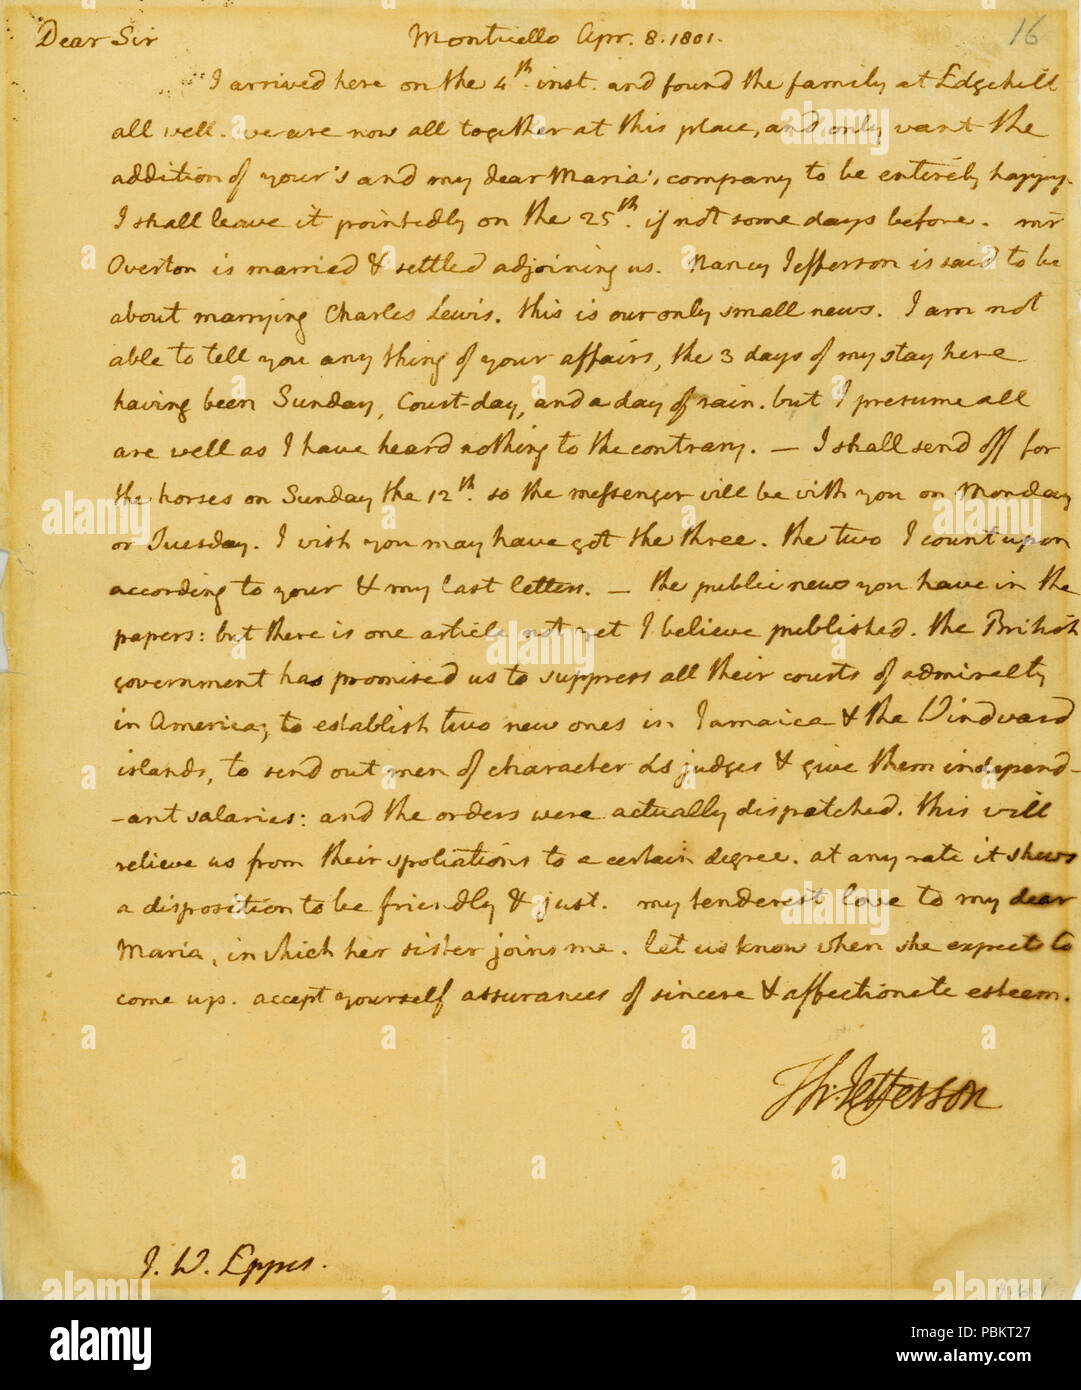 Dear Sir Monticello Apr. 8. 1801. 16
I arrived here on the 4th. inst. and found the family at Edgehill
all well. we are now all together at this place, and only want the
addition of your's and my dear Maria's company to be entirely happy.
I shall leave it pointedly on the 25th. if not some days before. mr
Overton is married & settled adjoining us. Nancy Jefferson is said to be
about marrying Charles Lewis. this is our only small news. I am not
able to tell you any thing of your affairs, the 3 days of my stay here
having been Sunday, Court-day, and a day of rain. but I presume all
are well as I have heard nothing to the contrary. — I shall send off for
the horses on Sunday the 12th. so the messenger will be with you on Monday
or Tuesday. I wish you may have got the three. the two I count upon
according to your & my last letters. — the public news you have in the
papers: but there is one article not yet I believe published. the British
government has promised us to suppress all their courts of admiralty
in America; to establish two new ones in Jamaica & the Windward
islands, to send out men of character as judges & give them independ-
-ant salaries: and the orders were actually dispatched. this will
relieve us from their spoliations to a certain degree. at any rate it shews
a disposition to be friendly & just. my tenderest love to my dear
Maria, in which her sister joins me. let us know when she expects to
come up. accept yourself assurances of sincere & affectionate esteem.
Th: Jefferson
J. W. Eppes.
alamy
Image ID: PBKT27
www.alamy.com